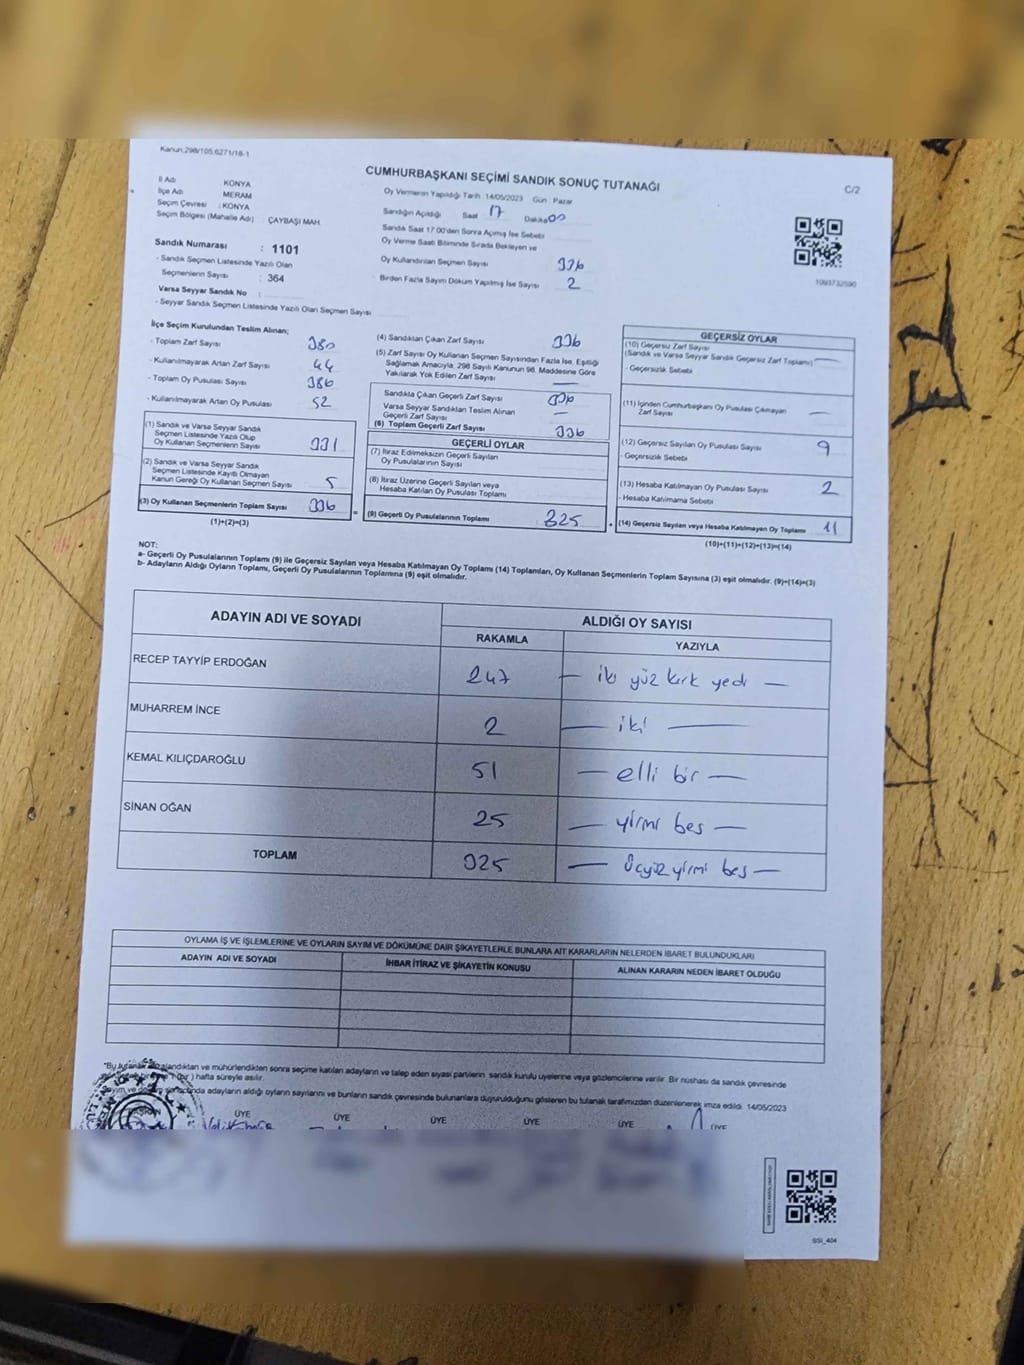 Kanun:298/105,6271/18-1
CUMHURBAŞKANI SEÇİMİ SANDIK SONUÇ TUTANAĞI
C/2
İl Adı KONYA
İlçe Adı MERAM
Seçim Çevresi : KONYA
Seçim Bölgesi (Mahalle Adı) : ÇAYBAŞI MAH.
Sandık Numarası : 1101
- Sandık Seçmen Listesinde Yazılı Olan
Seçmenlerin Sayısı : 364
Varsa Seyyar Sandık No :
- Seyyar Sandık Seçmen Listesinde Yazılı Olan Seçmen Sayısı
Oy Vermenin Yapıldığı Tarih 14/05/2023 Gün Pazar
Sandığın Açıldığı Saat 17 Dakika 00
Sandık Saat 17:00'den Sonra Açımış İse Sebebi
Oy Verme Saati Bitiminde Sırada Bekleyen ve
Oy Kullandırılan Seçmen Sayısı 336
Birden Fazla Sayım Döküm Yapılmış İse Sayısı 2
1093732590
İlçe Seçim Kurulundan Teslim Alınan;
- Toplam Zarf Sayısı 380
- Kullanılmayarak Artan Zarf Sayısı 44
- Toplam Oy Pusulası Sayısı 386
- Kullanılmayarak Artan Oy Pusulası 52
(1) Sandık ve Varsa Seyyar Sandık
Seçmen Listesinde Yazılı Olup
Oy Kullanan Seçmenlerin Sayısı 331
(2) Sandık ve Varsa Seyyar Sandık
Seçmen Listesinde Kayıtlı Olmayan
Kanun Gereği Oy Kullanan Seçmen Sayısı 5
(3) Oy Kullanan Seçmenlerin Toplam Sayısı 336
(1)+(2)=(3)
(4) Sandıktan Çıkan Zarf Sayısı 336
(5) Zarf Sayısı Oy Kullanan Seçmen Sayısından Fazla İse, Eşitliği
Sağlamak Amacıyla, 298 Sayılı Kanunun 98. Maddesine Göre
Yakılarak Yok Edilen Zarf Sayısı —
Sandıkta Çıkan Geçerli Zarf Sayısı 336
Varsa Seyyar Sandıktan Teslim Alınan
Geçerli Zarf Sayısı —
(6) Toplam Geçerli Zarf Sayısı 336
GEÇERLİ OYLAR
(7) İtiraz Edilmeksizin Geçerli Sayılan
Oy Pusulalarının Sayısı
(8) İtiraz Üzerine Geçerli Sayılan veya
Hesaba Katılan Oy Pusulası Toplamı
(9) Geçerli Oy Pusulalarının Toplamı 325
GEÇERSİZ OYLAR
(10) Geçersiz Zarf Sayısı
(Sandık ve Varsa Seyyar Sandık Geçersiz Zarf Toplamı) —
- Geçersizlik Sebebi
(11) İçinden Cumhurbaşkanı Oy Pusulası Çıkmayan
Zarf Sayısı —
(12) Geçersiz Sayılan Oy Pusulası Sayısı 9
- Geçersizlik Sebebi
(13) Hesaba Katılmayan Oy Pusulası Sayısı 2
- Hesaba Katılmama Sebebi
(14) Geçersiz Sayılan veya Hesaba Katılmayan Oy Toplamı 11
(10)+(11)+(12)+(13)=(14)
NOT:
a- Geçerli Oy Pusulalarının Toplamı (9) ile Geçersiz Sayılan veya Hesaba Katılmayan Oy Toplamı (14) Toplamları, Oy Kullanan Seçmenlerin Toplam Sayısına (3) eşit olmalıdır. (9)+(14)=(3)
b- Adayların Aldığı Oyların Toplamı, Geçerli Oy Pusulalarının Toplamına (9) eşit olmalıdır.
ADAYIN ADI VE SOYADI ALDIĞI OY SAYISI
RAKAMLA YAZIYLA
RECEP TAYYİP ERDOĞAN 247 — iki yüz kırk yedi —
MUHARREM İNCE 2 — iki —
KEMAL KILIÇDAROĞLU 51 — elli bir —
SİNAN OĞAN 25 — yirmi beş —
TOPLAM 325 — üçyüz yirmi beş —
OYLAMA İŞ VE İŞLEMLERİNE VE OYLARIN SAYIM VE DÖKÜMÜNE DAİR ŞİKAYETLERLE BUNLARA AİT KARARLARIN NELERDEN İBARET BULUNDUKLARI
ADAYIN ADI VE SOYADI İHBAR İTİRAZ VE ŞİKAYETİN KONUSU ALINAN KARARIN NEDEN İBARET OLDUĞU
mühürlendikten sonra seçime katılan adayların ve talep eden siyasi partilerin sandık kurulu üyelerine veya gözlemcilerine verilir. Bir nüshası da sandık çevresinde
hafta süreyle asılır.
adayların aldığı oyların sayılarını ve bunların sandık çevresinde bulunanlara duyurulduğunu gösteren bu tutanak tarafımızdan düzenlenerek imza edildi. 14/05/2023
ÜYE ÜYE ÜYE ÜYE ÜYE ÜYE
SSI_404